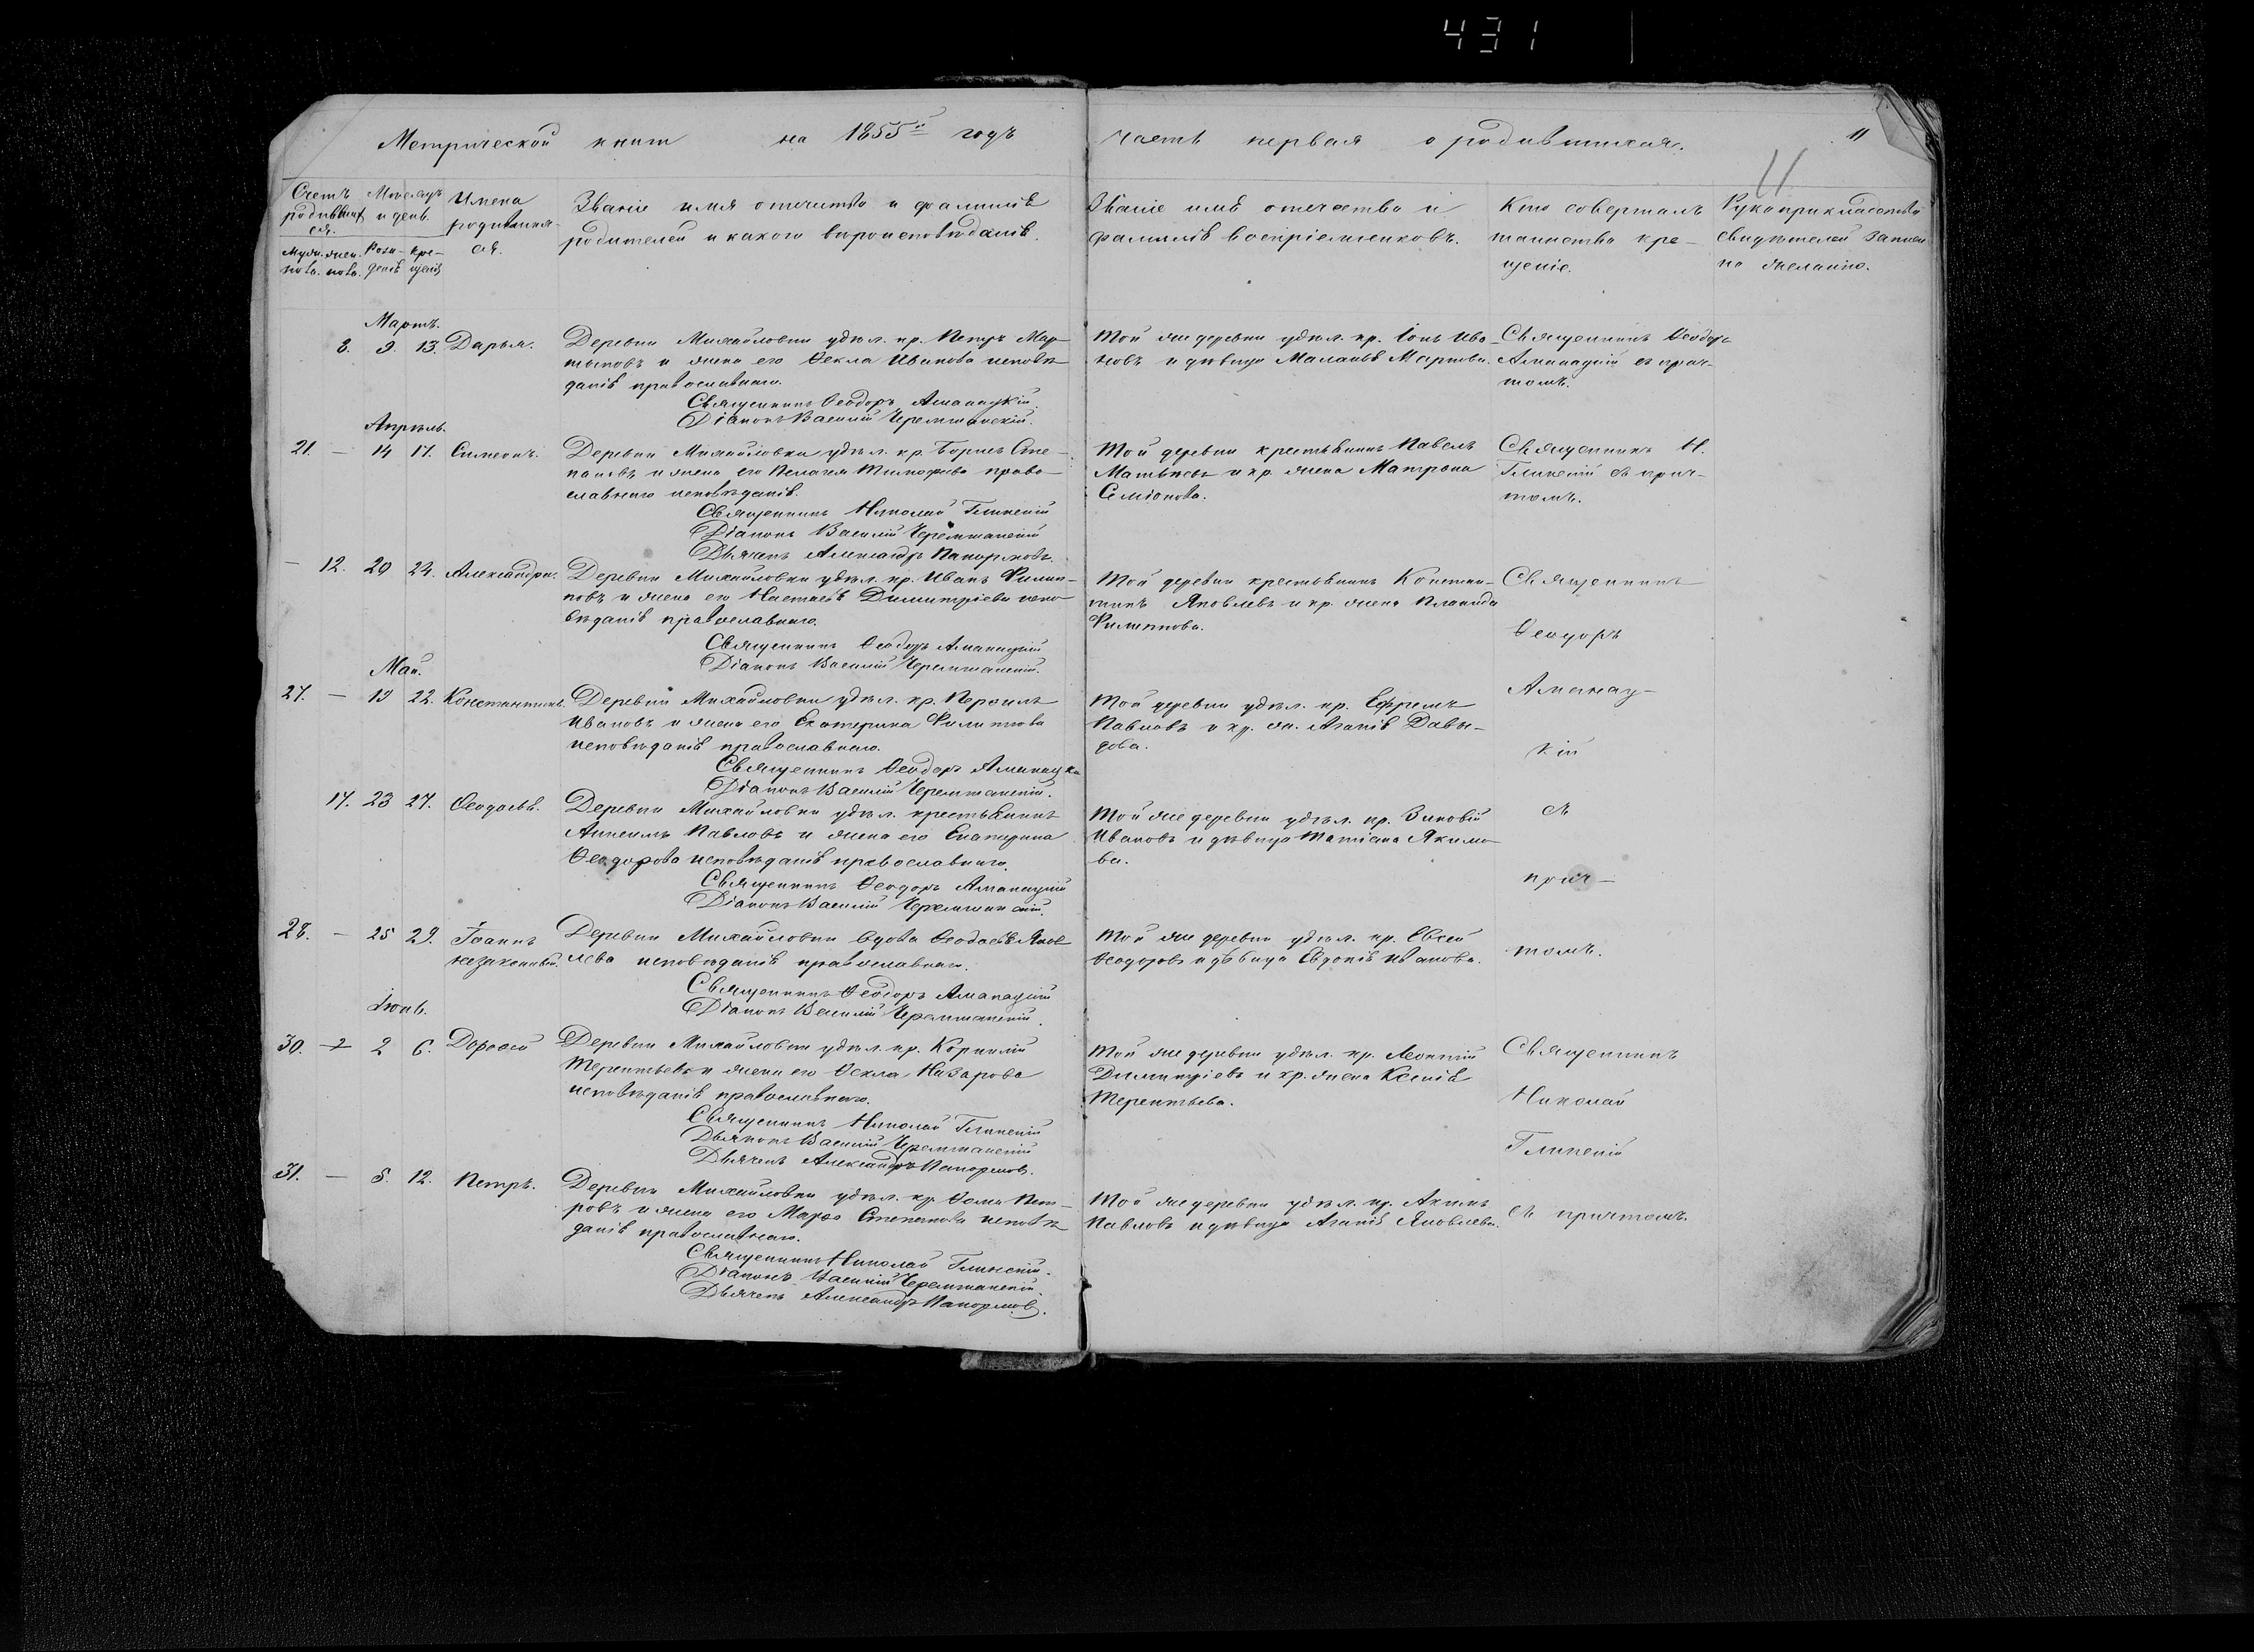 431
Метрической книги на 1855й годъ часть первая о родившихся. 11
11
Счетъ родившихся. Месяцъ и день. Имена родившихся.
Званіе имя отечество и фамилія
родителей и какого вѣроисповѣданія.
Званіе имя отечество и
фамилія воспріемниковъ.
Кто совершалъ
таинство кре-
щенія.
Рукоприкладство
свидѣтелей записи
по желанію.
Муж. жен. Рож- кре-
пола. пола. денія щенія
Мартъ.
8. 9. 13. Дарья.
Деревни Михайловки удѣл. кр. Петръ Мар-
тыновъ и жена его Ѳекла Иванова исповѣ-
данія православнаго.
Священникъ Ѳеодоръ Аманацкій.
Діаконъ Василій Черемшанскій.
Той же деревни удѣл. кр. Іонъ Ива-
новъ и дѣвица Маланья Маркова.
Священникъ Ѳеодоръ
Аманацкій съ прич-
томъ.
Апрѣль.
21. — 14 17. Симеонъ.
Деревни Михайловки удѣл. кр. Борисъ Сте-
пановъ и жена его Пелагея Тимофеева право-
славнаго исповѣданія.
Священникъ Николай Глинскій
Діаконъ Василій Черемшанскій
Дьячекъ Александръ Панормовъ.
Той деревни крестьянинъ Павелъ
Матвѣевъ и кр. жена Матрона
Семіонова.
Священникъ Н.
Глинскій съ прич-
томъ.
— 12. 20 24. Александра.
Деревни Михайловки удѣл. кр. Иванъ Филип-
повъ и жена его Настасья Димитріева испо-
вѣданія православнаго.
Священникъ Ѳеодоръ Аманацкій
Діаконъ Василій Черемшанскій.
Той деревни крестьянинъ Констан-
тинъ Яковлевъ и кр. жена
Филиппова.
Священникъ
Ѳеодоръ
Аманац-
кій
съ
прич-
томъ.
Май.
27. — 19 22. Константинъ.
Деревни Михайловки удѣл. кр. Перфилъ
Ивановъ и жена его Екатерина Филиппова
исповѣданія православнаго.
Священникъ Ѳеодоръ Аманацкій
Діаконъ Василій Черемшанскій.
Той деревни удѣл. кр. Ефремъ
Павловъ и кр. ж. Агапія Давы-
дова.
17. 23 27. Ѳеодосья.
Деревни Михайловки удѣл. крестьянинъ
Павловъ и жена его Екатерина
Ѳеодорова исповѣданія православнаго.
Священникъ Ѳеодоръ Аманацкій
Діаконъ Василій Черемшанскій.
Той же деревни удѣл. кр. Зиновій
Ивановъ и дѣвица Татіана Якимо-
ва.
28. — 25 29. Іоаннъ
незаконный.
Деревни Михайловки вдова Ѳеодосья Яков-
лева исповѣданія православнаго.
Священникъ Ѳеодоръ Аманацкій
Діаконъ Василій Черемшанскій.
Той же деревни удѣл. кр. Евсей
Ѳеодоровъ и дѣвица Евдокія Иванова.
Іюнь.
30. — 2 6. Дороѳей
Деревни Михайловки удѣл. кр. Корнилій
Терентьевъ и жена его Ѳекла Назарова
исповѣданія православнаго.
Священникъ Николай Глинскій
Діаконъ Василій Черемшанскій
Дьячекъ Александръ Панормовъ.
Той же деревни удѣл. кр. Леонтій
Димитріевъ и кр. жена Ксенія
Терентьева.
Священникъ
Николай
Глинскій
съ причтомъ.
31. — 8. 12. Петръ.
Деревни Михайловки удѣл. кр. Ѳома Пет-
ровъ и жена его Марѳа Степанова исповѣ-
данія православнаго.
Священникъ Николай Глинскій.
Діаконъ Василій Черемшанскій.
Дьячекъ Александръ Панормовъ.
Той же деревни удѣл. кр. Акимъ
Павловъ и дѣвица Агапія Яковлева.